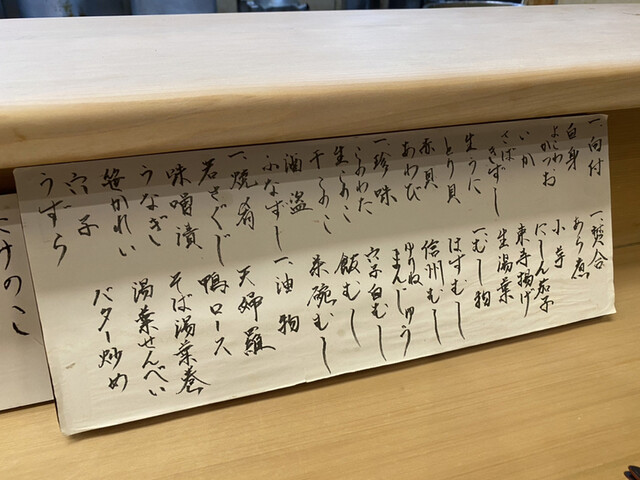 一、向付
白身
よこわ
かつお
いか
さば
きずし
生うに
とり貝
赤貝
あわび
一、珍味
このわた
生このこ
干このこ
酒盗
ふなずし
一、焼肴
若さぐじ
味噌漬
うなぎ
笹かれい
穴子
うすら
一、焚合
あら煮
小芋
にしん茄子
東寺揚げ
生湯葉
一、むし物
はすむし
信州むし
ゆりね
まんじゅう
穴子白むし
飯むし
茶碗むし
一、油物
天婦羅
鴨ロース
そば湯葉巻
湯葉せんべい
バター炒め
たけのこ